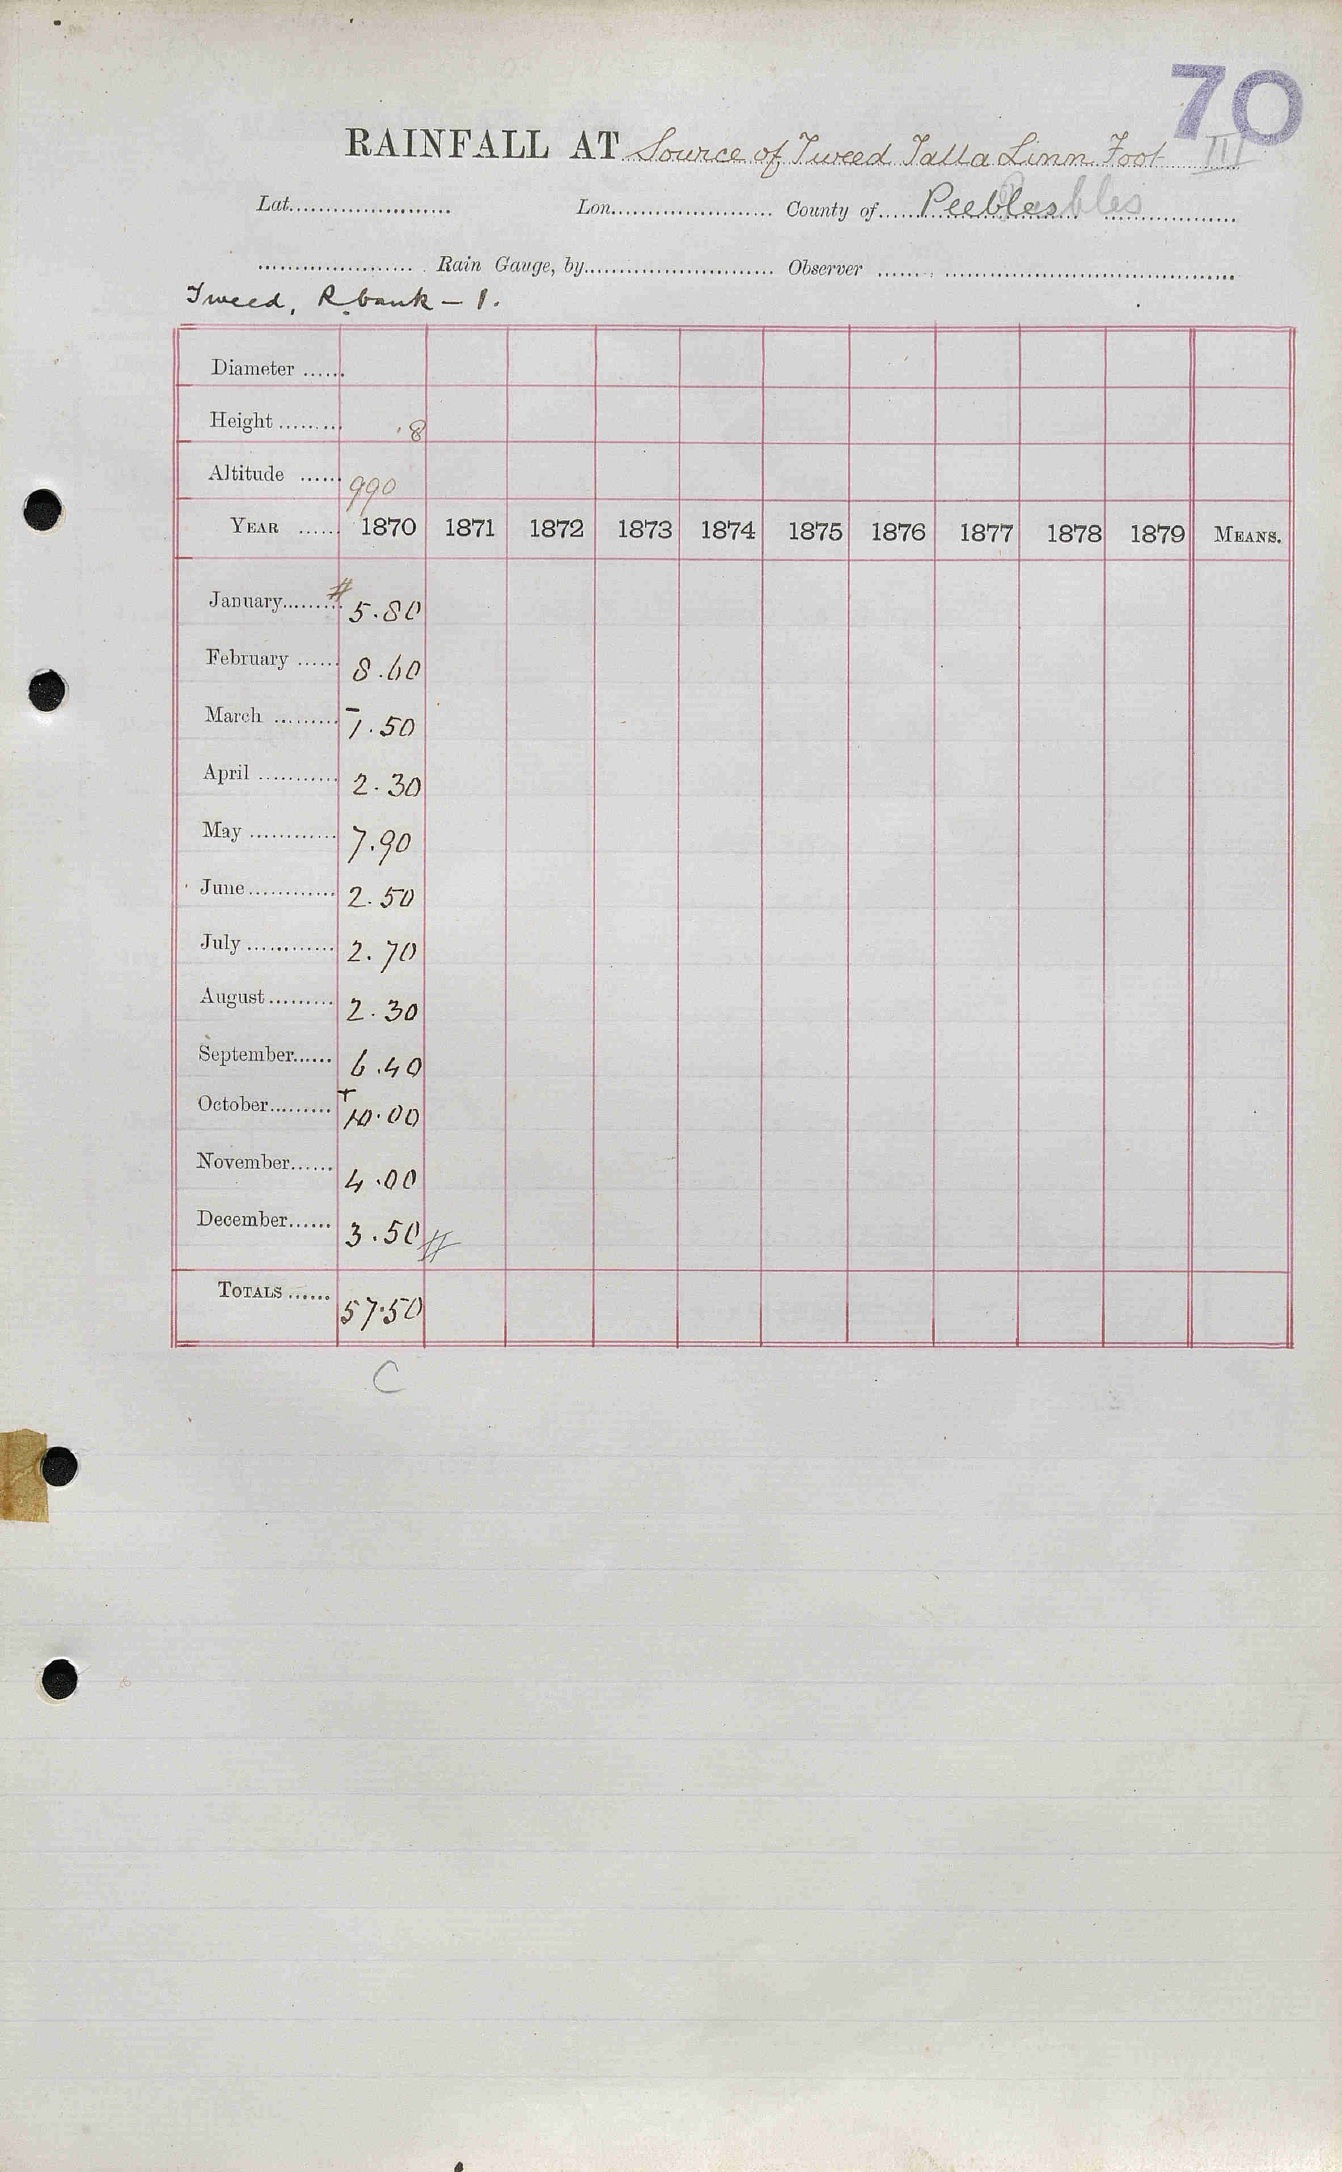 70
RAINFALL AT Source of Tweed Talla Linn Foot III
Lat. Lon. County of Peebles
Rain Gauge, by Observer
Tweed, R. bank – 1.
Diameter
Height .8
Altitude 990
YEAR 1870 1871 1872 1873 1874 1875 1876 1877 1878 1879 MEANS.
January # 5.80
February 8.60
March – 1.50
April 2.30
May 7.90
June 2.50
July 2.70
August 2.30
September 6.40
October + 10.00
November 4.00
December 3.50 #
TOTALS 57.50
C